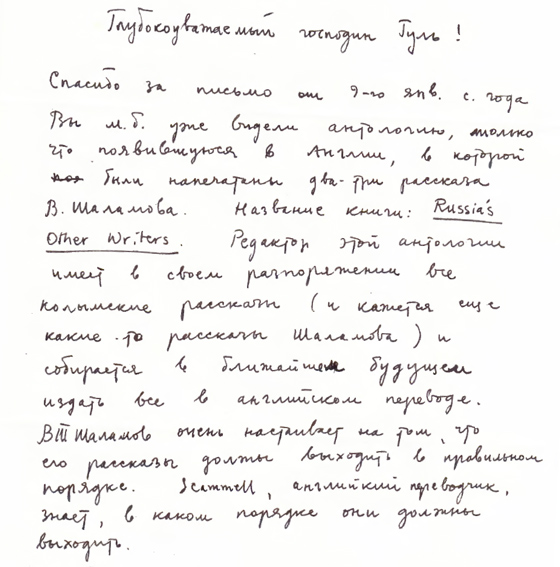 Глубокоуважаемый господин Гуль!
Спасибо за письмо от 9-го янв. с. года
Вы м.б. уже видели антологию, только
что появившуюся в Англии, в которой
были напечатаны два-три рассказа
В. Шаламова. Название книги: Russia's
Other Writers. Редактор этой антологии
имеет в своем распоряжении все
колымские рассказы (и кажется еще
какие-то рассказы Шаламова) и
собирается в ближайшем будущем
издать все в английском переводе.
ВТШаламов очень настаивает на том, что
его рассказы должны выходить в правильном
порядке. Scammell, английский переводчик,
знает, в каком порядке они должны
выходить.